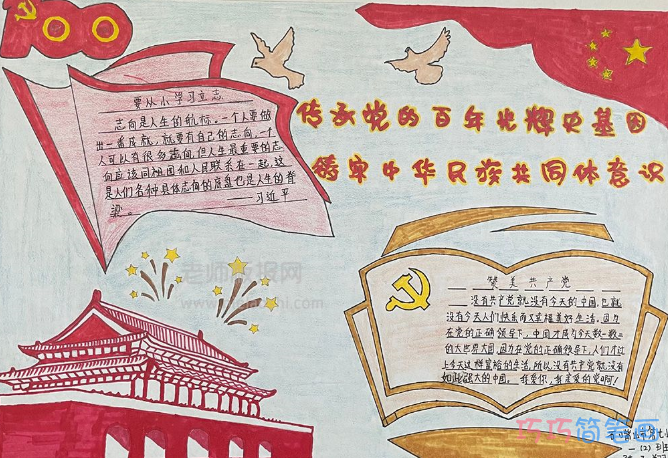 100
传承党的百年光辉史基因
铸牢中华民族共同体意识
要从小学习立志
志向是人生的航标。一个人要做
出一番成就，就要有自己的志向。一个
人可以有很多志向，但人生最重要的志
向应该同祖国和人民联系在一起，这
是人们各种具体志向的底盘也是人生的脊
梁。——习近平
老师板报网
赞美共产党
没有共产党就没有今天的中国，也就
没有今天人们快乐而又幸福美好生活。因为
在党的正确领导下，中国才成为今天数一数二
的大世界大国，因为在党的正确领导下，人们才过
上今天这样富裕的生活，所以，没有共产党就没有
如此强大的中国。我爱你，我亲爱的党啊！
巧巧简笔画
一（2）班